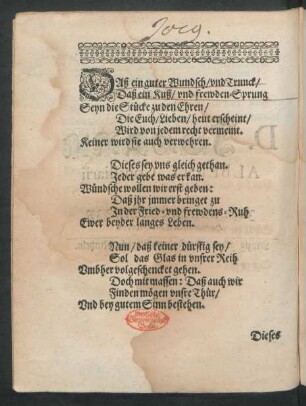 Joeg.
DAß ein guter Wundsch/ vnd Trunck/
Daß ein Kuß/ vnd frewden-Sprung
Seyn die Stücke zu den Ehren/
Die Euch/ Lieben/ heut erscheint/
Wird von jedem recht vermeint.
Keiner wird sie auch verwehren.
Dieses sey vns gleich gethan.
Jeder gebe was er kan.
Wündsche wollen wir erst geben:
Daß jhr jmmer bringet zu
In der Fried- vnd frewdens-Ruh
Ewer beyder langes Leben.
Nun/ daß keiner dürstig sey/
Sol das Glas in vnsrer Reih
Vmbher volgeschencket gehen.
Doch mit massen: Daß auch wir
Finden mögen vnsre Thür/
Vnd bey gutem Sinn bestehen.
Dieses